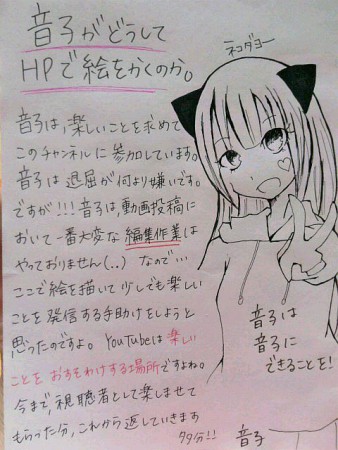 音子がどうして
HPで絵をかくのか。
ネコダヨー
音子は、楽しいことを求めて
このチャンネルに参加しています。
音子は退屈が何より嫌いです。
ですが!!!音子は、動画投稿に
おいて一番大変な編集作業は
やっておりません(..) なので…
ここで絵を描いて少しでも楽しい
ことを発信する手助けをしようと
思ったのですよ。YouTubeは楽しい
ことをおすそわけする場所ですよね。
今まで、視聴者として楽しませて
もらった分、これから返していきます
タタ分!!
音子は
音子に
できることを!
音子